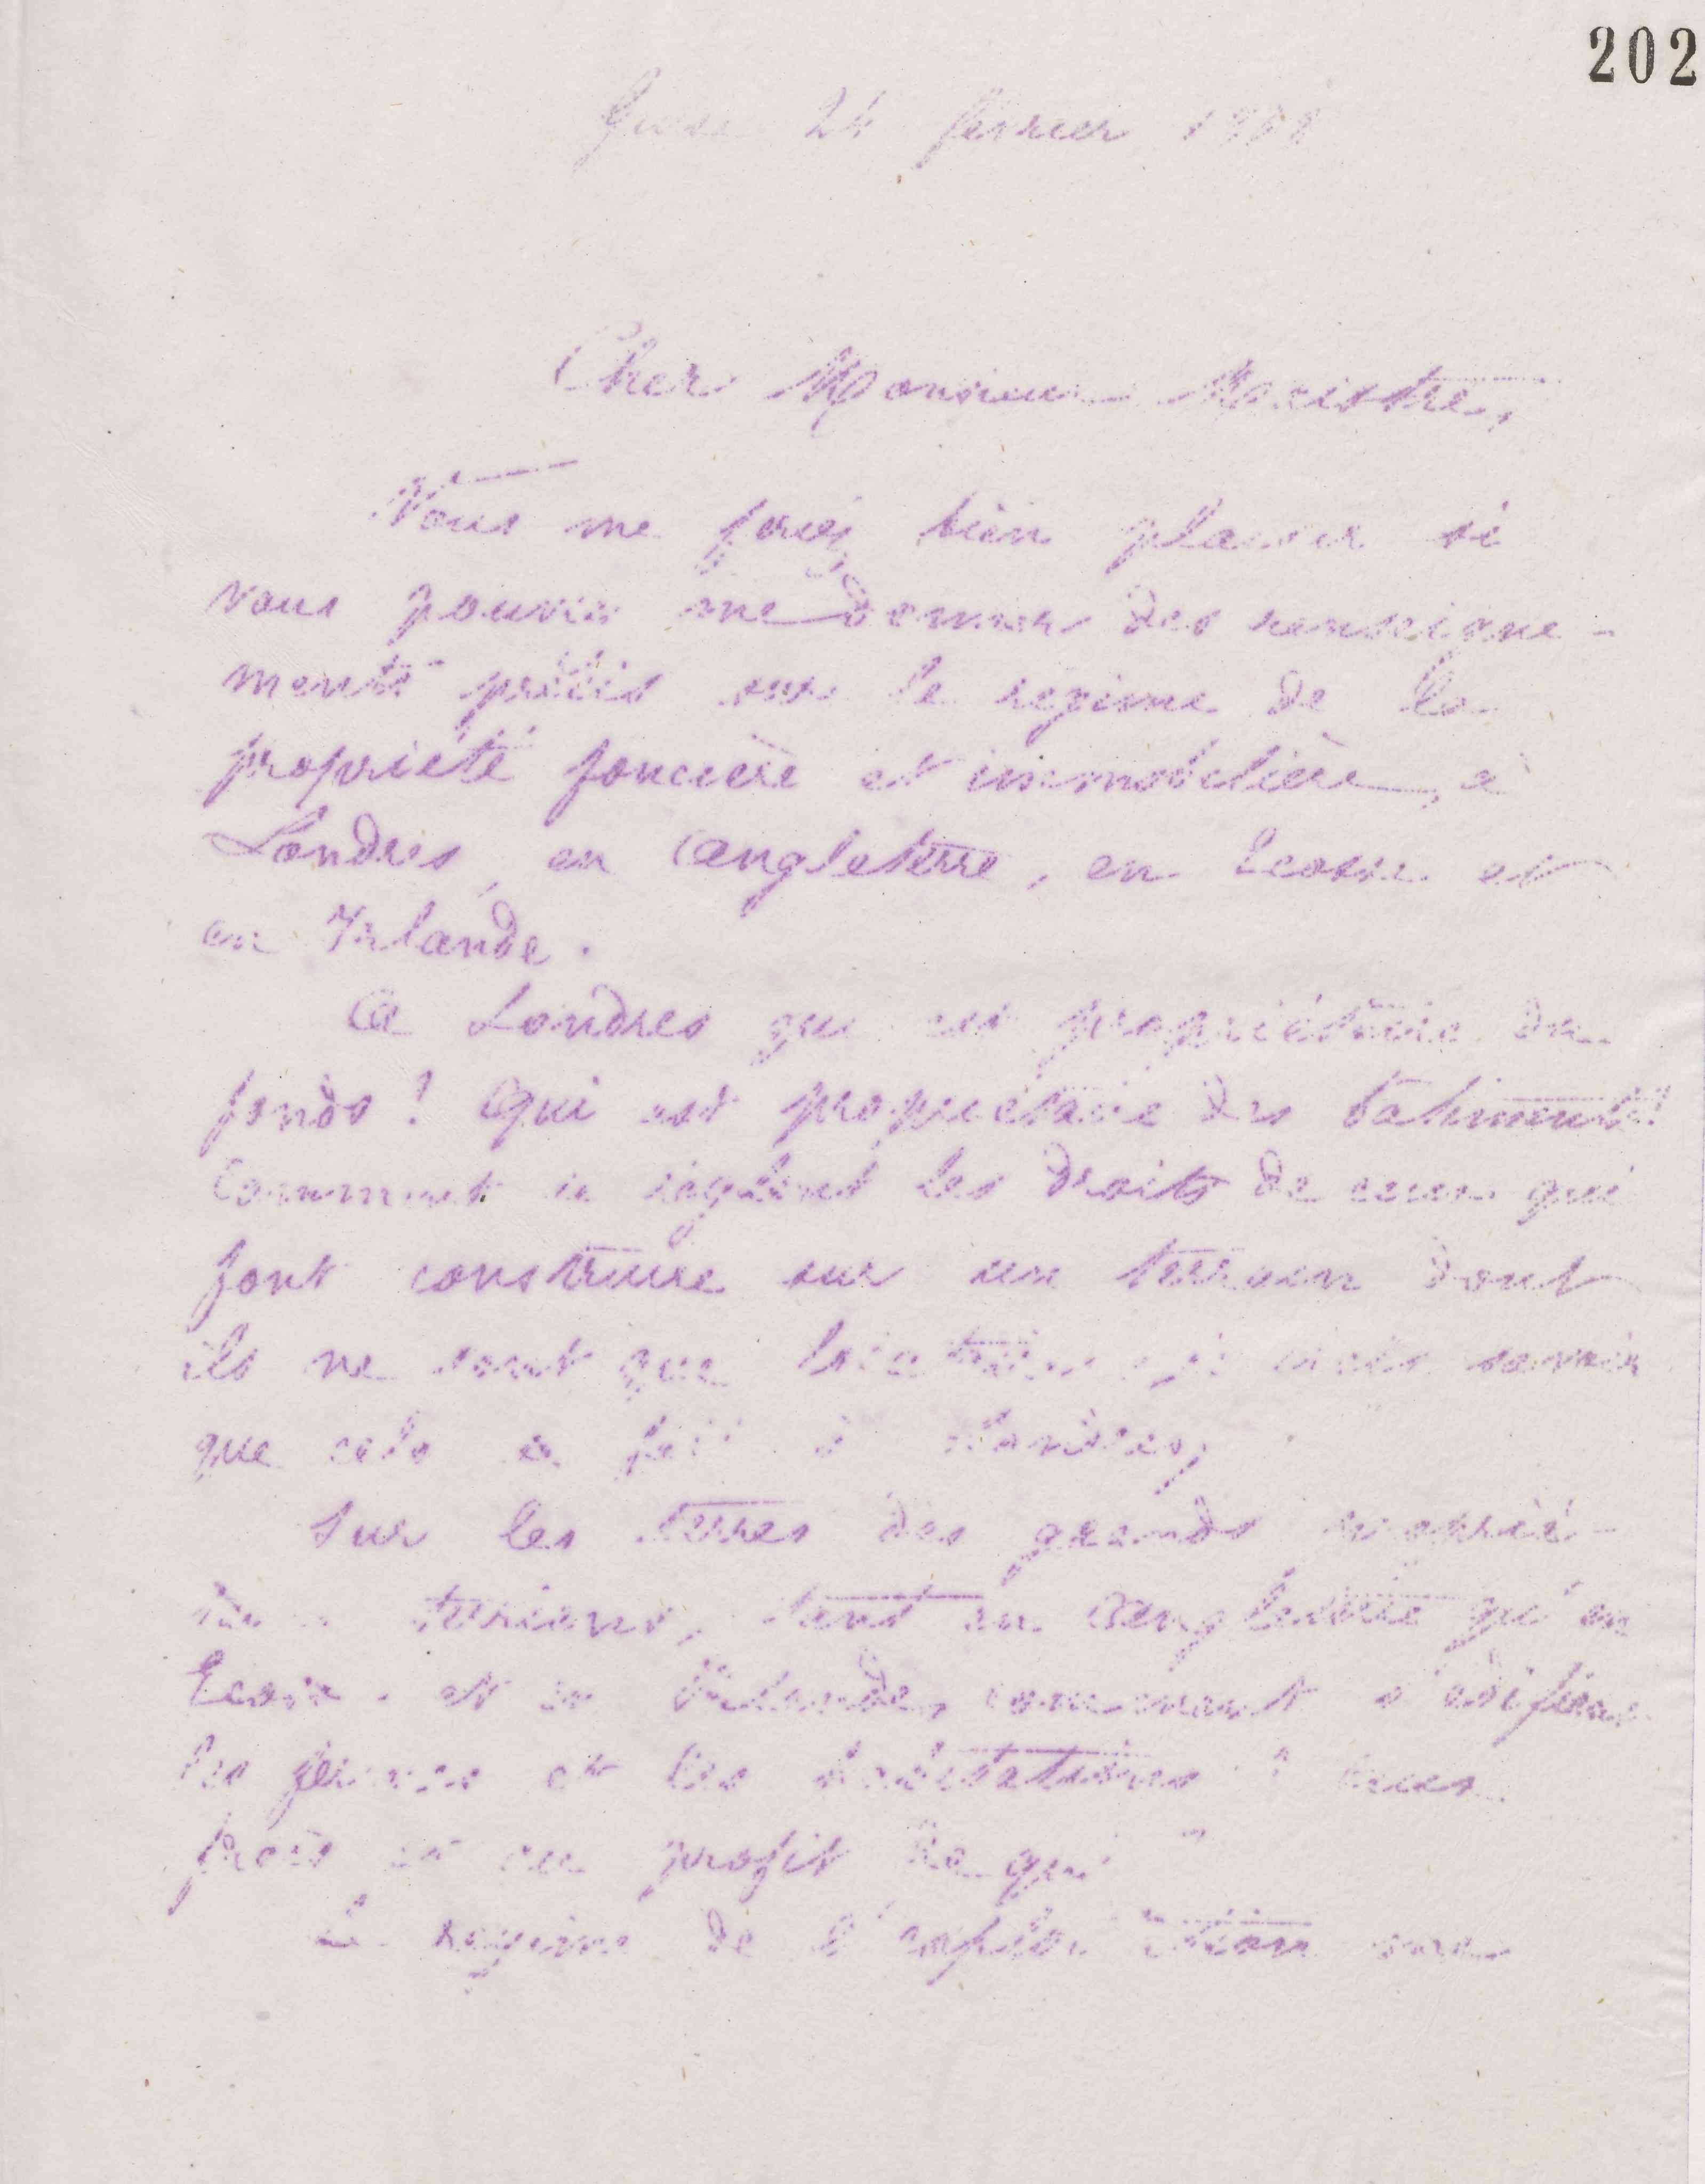 202
24 février
Cher Monsieur
Vous me ferez bien plaisir si
vous pouviez me donner des renseigne-
ments précis sur le régime de la
propriété foncière et immobilière, à
Londres, en Angleterre, en Ecosse et
en Irlande.
A Londres qui est propriétaire du
fonds? Qui est propriétaire des bâtiments?
Comment se règlent les droits de ceux qui
font construire sur un terrain dont
ils ne sont que
que cela se fait à Londres,
Sur les terres des grands proprié-
terriens, tant en Angleterre qu'en
Ecosse et en Irlande, comment s'édifient
les fermes et les habitations? aux
frais et au profit de qui
Le régime de l'